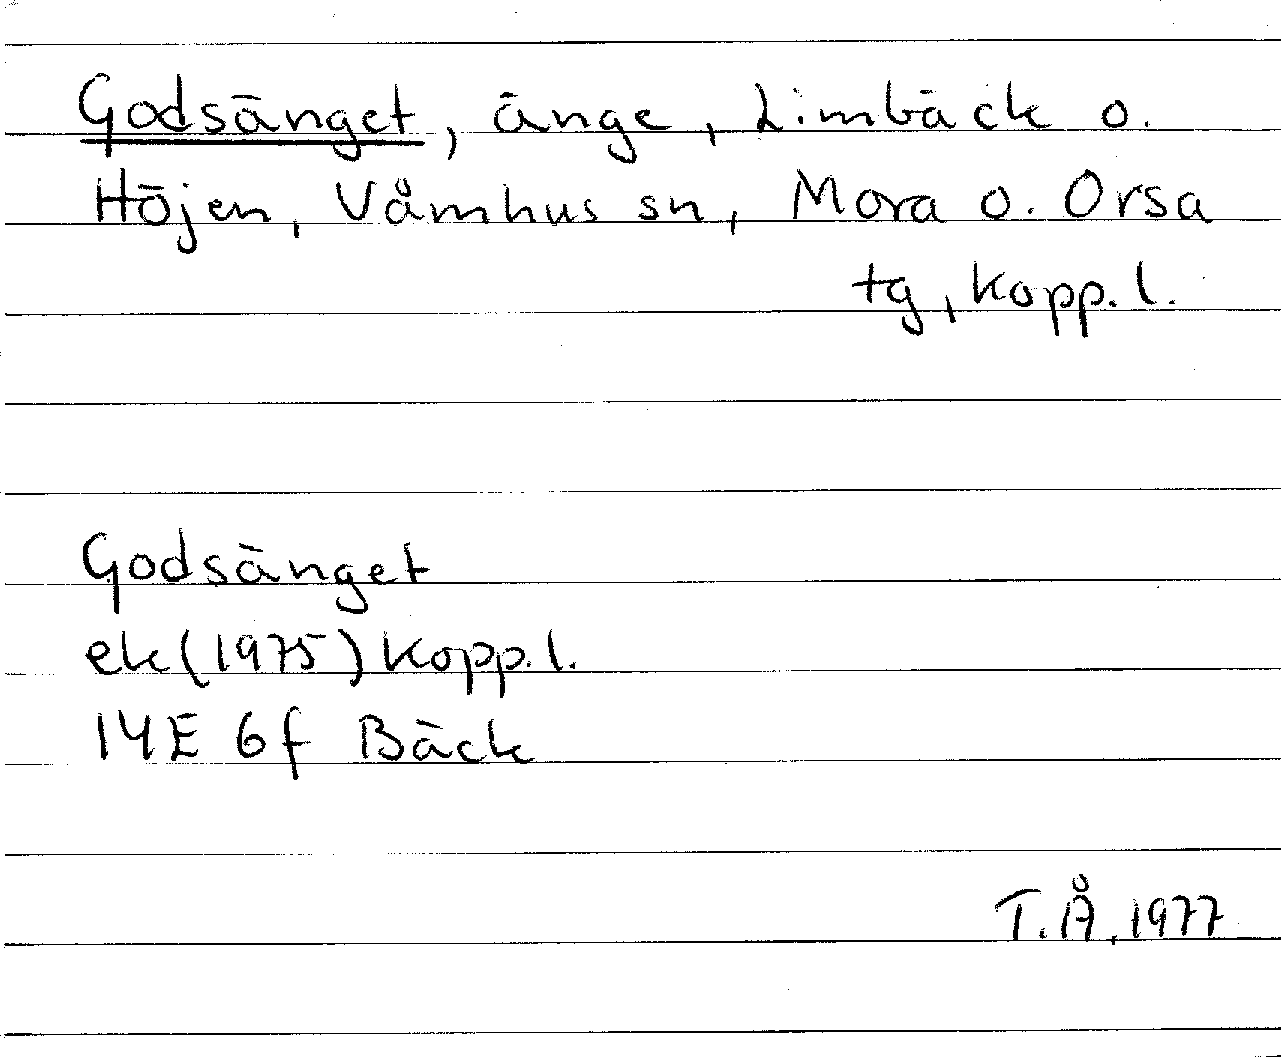 Godsänget, änge, Limbäck o.
Höjen, Våmhus sn, Mora o. Orsa
tg, Kopp. l.
Godsänget
ek (1975) Kopp. l.
14E 6f Bäck
T.Å, 1977